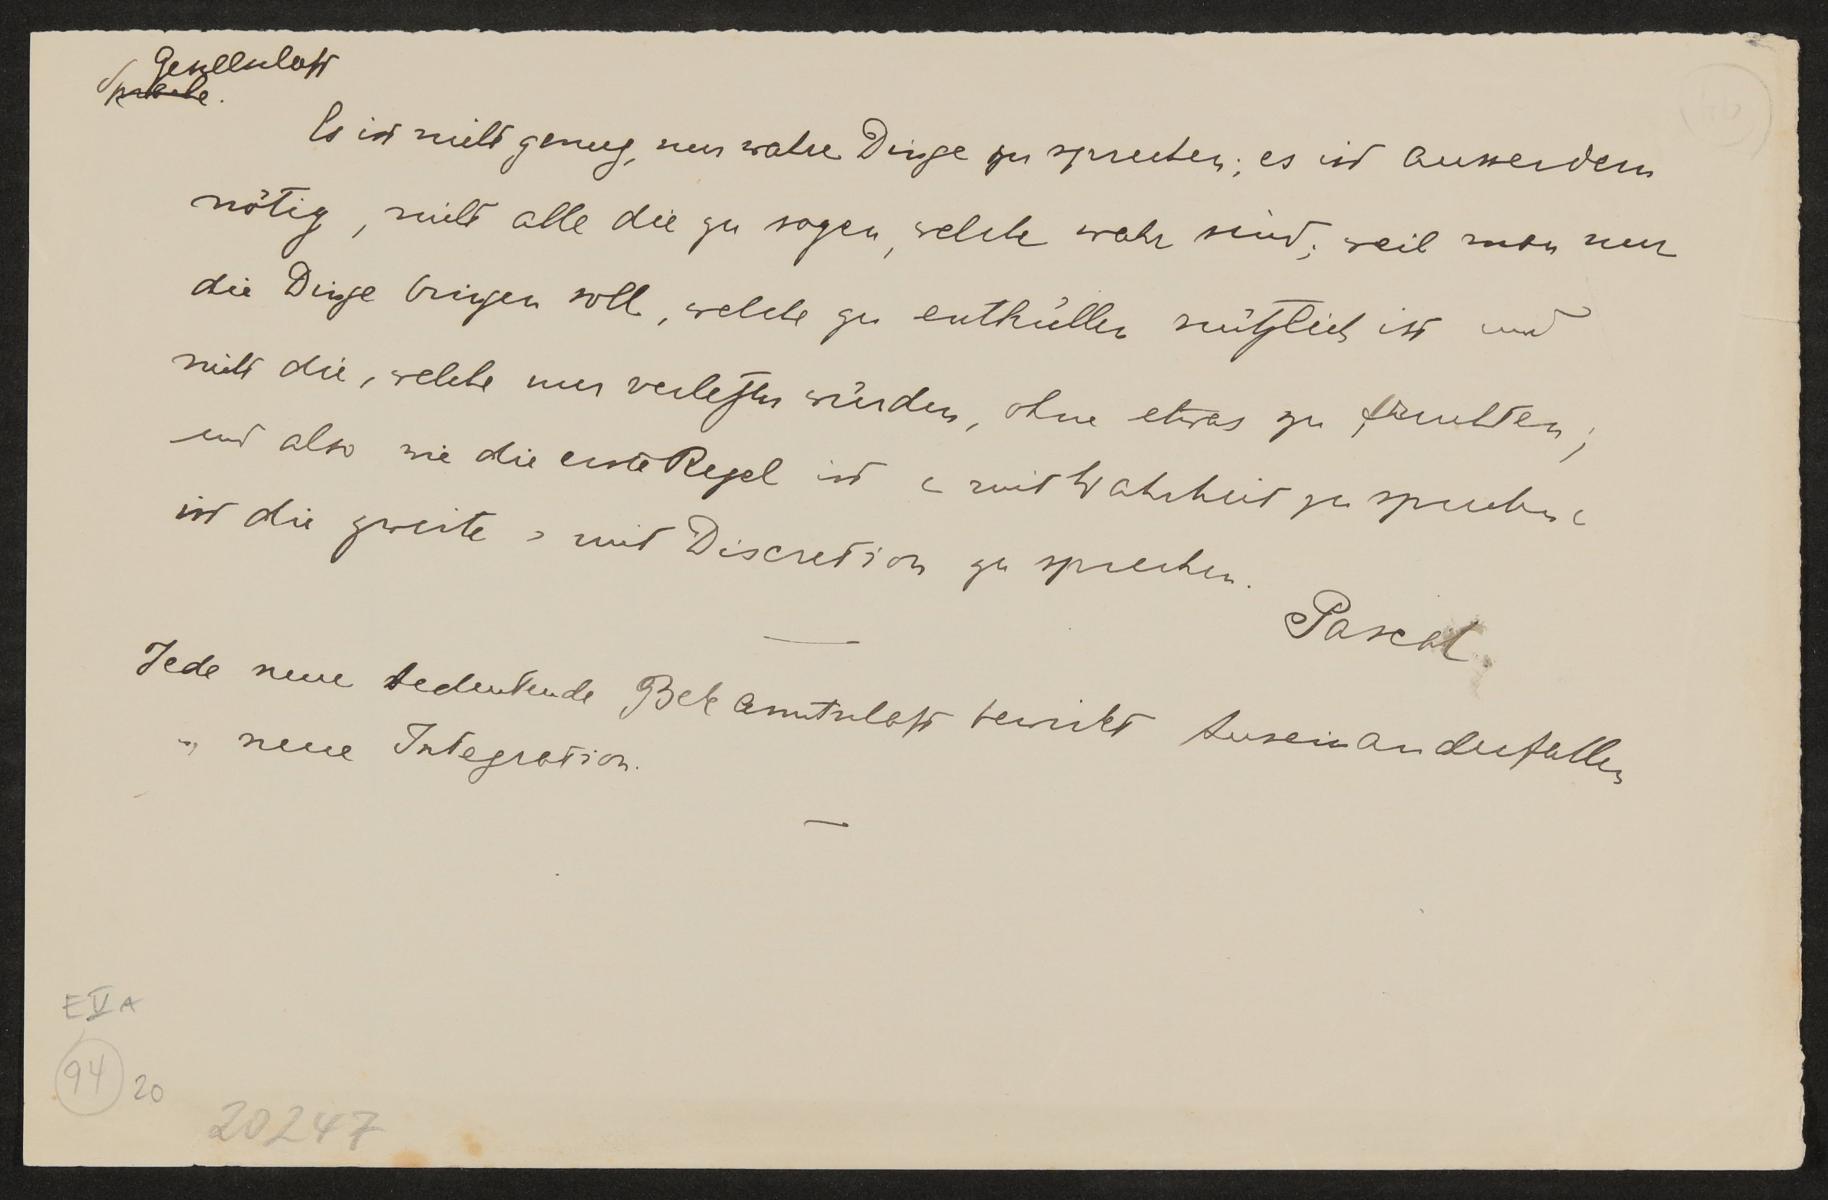 Gesellschaft
Sprache.
Es ist nicht genug, nur wahre Dinge zu sprechen; es ist ausserdem
nötig, nicht alle die zu sagen, welche wahr sind; weil man nur
die Dinge bringen soll, welche zu enthüllen nützlich ist und
nicht die, welche nur verletzen würden, ohne etwas zu fruchten;
und also wie die erste Regel ist « mit Wahrheit zu sprechen «
ist die zweite » mit Discretion zu sprechen.
Pascal
Jede neue bedeutende Bekanntschaft bewirkt Auseinanderfallen
u. neue Integration.
E V A
94 20
20247